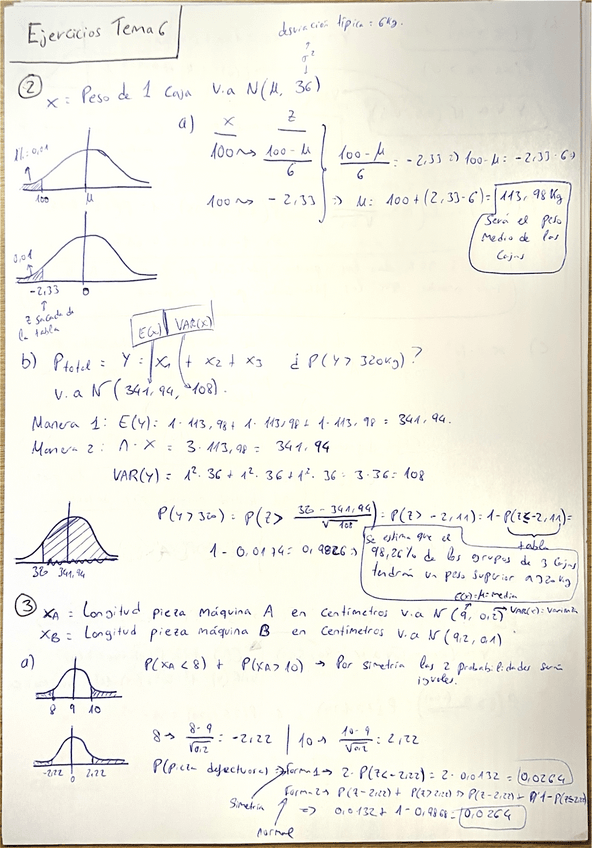 Ejercicios Tema 6
desviación típica = 6kg.
σ²
② x = Peso de 1 Caja v.a N(μ, 36)
a) x z
100 ⇝ 100 - μ / 6
100 - μ / 6 = -2,33 => 100 - μ = -2,33 · 6 =>
100 ⇝ -2,33 => μ = 100 + (2,33 · 6) = 113,98 Kg
Será el peso
medio de las
Cajas
0,01
100 μ
0,01
-2,33 0
z sacada de
la tabla
E(x) VAR(x)
b) Ptotal = Y = x1 + x2 + x3 ¿ P(Y > 320kg) ?
v.a N (341,94, 108).
Manera 1: E(Y) = 1 · 113,98 + 1 · 113,98 + 1 · 113,98 = 341,94.
Manera 2: n · x = 3 · 113,98 = 341,94
VAR(Y) = 1² · 36 + 1² · 36 + 1² · 36 = 3 · 36 = 108
P(Y > 320) = P(Z > 320 - 341,94 / √108) = P(Z > -2,11) = 1 - P(Z ≤ -2,11) =
tabla
1 - 0,0174 = 0,9826 =>
Se estima que el
98,26% de los grupos de 3 Cajas
tendrán un peso superior a 320kg
320 341,94
E(x) = μ = media
③ xA = Longitud pieza máquina A en Centímetros v.a N (9, 0,2) VAR(x) = Varianza
xB = Longitud pieza máquina B en Centímetros v.a N (9,2, 0,1)
a) P(xA < 8) + P(xA > 10) → Por simetría las 2 probabilidades serán
iguales.
8 9 10
8 → 8 - 9 / √0,2 = -2,22 | 10 → 10 - 9 / √0,2 = 2,22
-2,22 0 2,22
P(pieza defectuosa) => forma 1 → 2 · P(Z < -2,22) = 2 · 0,0132 = 0,0264
Simetría
forma 2 → P(Z < -2,22) + P(Z > 2,22) => P(Z < -2,22) + 1 - P(Z ≤ 2,22)
=> 0,0132 + 1 - 0,9868 = 0,0264
normal